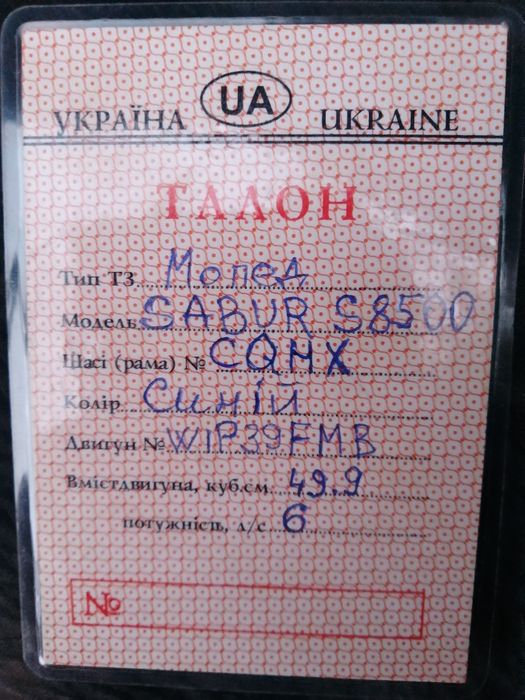 УКРАЇНА UA UKRAINE
ТАЛОН
Тип ТЗ Мопед
Модель SABUR S8500
Шасі (рама) № CQHX
Колір Синій
Двигун № W1P39FMB
Вмістдвигуна, куб.см 49.9
потужність, л/с 6
№